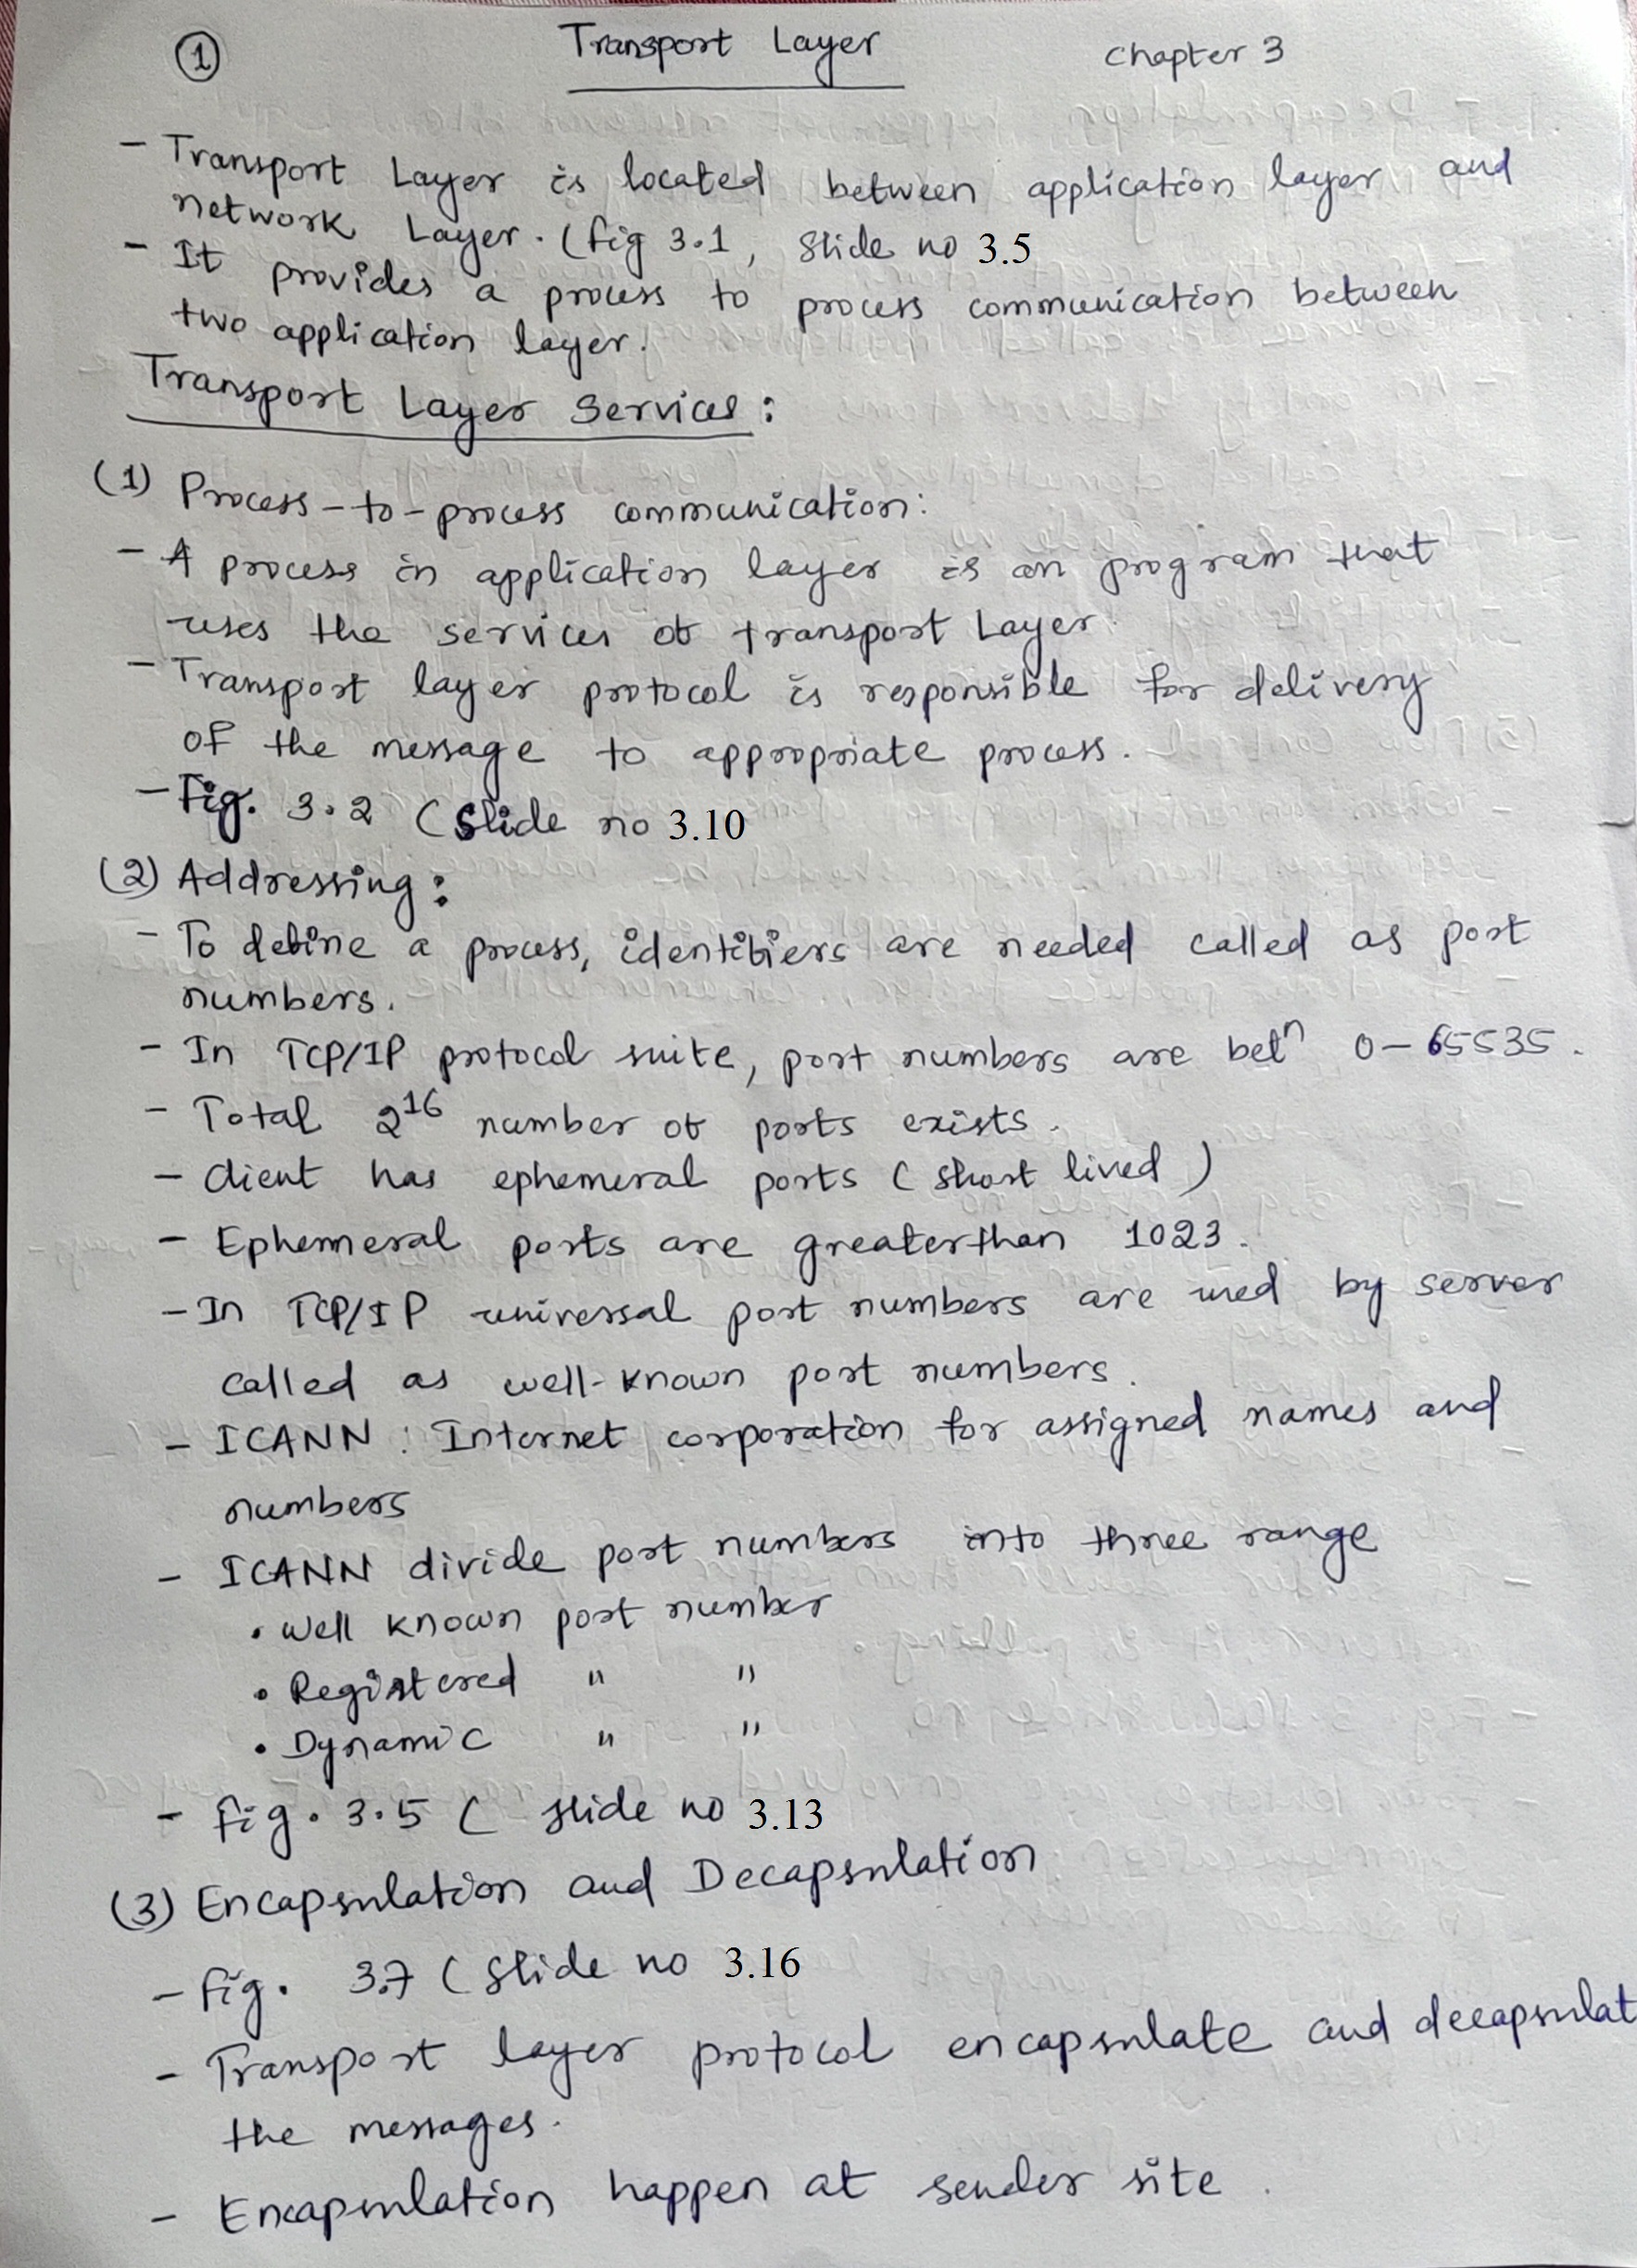 1 Transport Layer Chapter 3
- Transport Layer is located between application layer and
network Layer. (fig 3.1, Slide no 3.5
- It provides a process to process communication between
two application layer.
Transport Layer Services:
(1) Process-to-process communication:
- A process in application layer is an program that
uses the services of transport Layer.
- Transport layer protocol is responsible for delivery
of the message to appropriate process.
- Fig. 3.2 (Slide no 3.10
(2) Addressing:
- To define a process, identifiers are needed called as port
numbers.
- In TCP/IP protocol suite, port numbers are betⁿ 0-65535.
- Total 2¹⁶ number of ports exists.
- Client has ephemeral ports (short lived)
- Ephemeral ports are greaterthan 1023.
- In TCP/IP universal port numbers are used by server
called as well-known port numbers.
- ICANN : Internet corporation for assigned names and
numbers
- ICANN divide port numbers into three range
• Well known port number
• Registered " "
• Dynamic " "
- fig. 3.5 ( slide no 3.13
(3) Encapsulation and Decapsulation
- fig. 3.7 (Slide no 3.16
- Transport layer protocol encapsulate and decapsulat
the messages.
- Encapsulation happen at sender site.